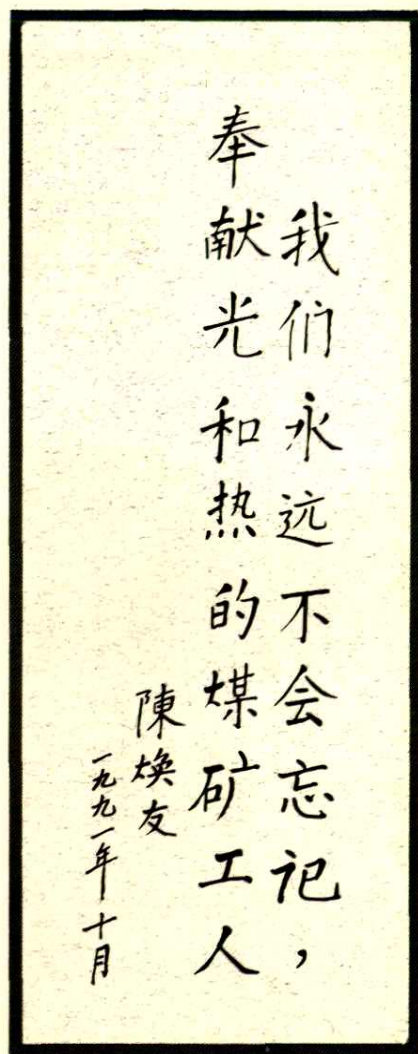 我们永远不会忘记，
奉献光和热的煤矿工人
陳焕友
一九九一年十月